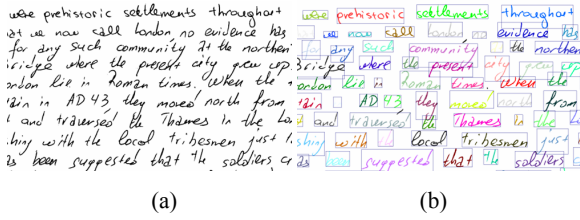 were prehistoric settlements throughout
at we now call london, no evidence has
for any such community at the northern
bridge where the present city grew up.
ondon lie in Roman times. When the
tain in AD 43, they moved north from
t and traversed the Thames in the
hing with the local tribesmen just
as been suggested that the soldiers cr
were prehistoric settlements throughout
we now call london no evidence
for any such community the northern
bridge where the present city grew up.
ondon lie in Roman times. When the
tain in AD 43, they moved north from
and traversed the Thames in the
shing with local tribesmen just
as been suggested that the soldiers
(a) (b)